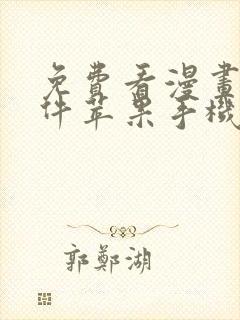 免費看漫畫
件苹果手機
郭鄭湖